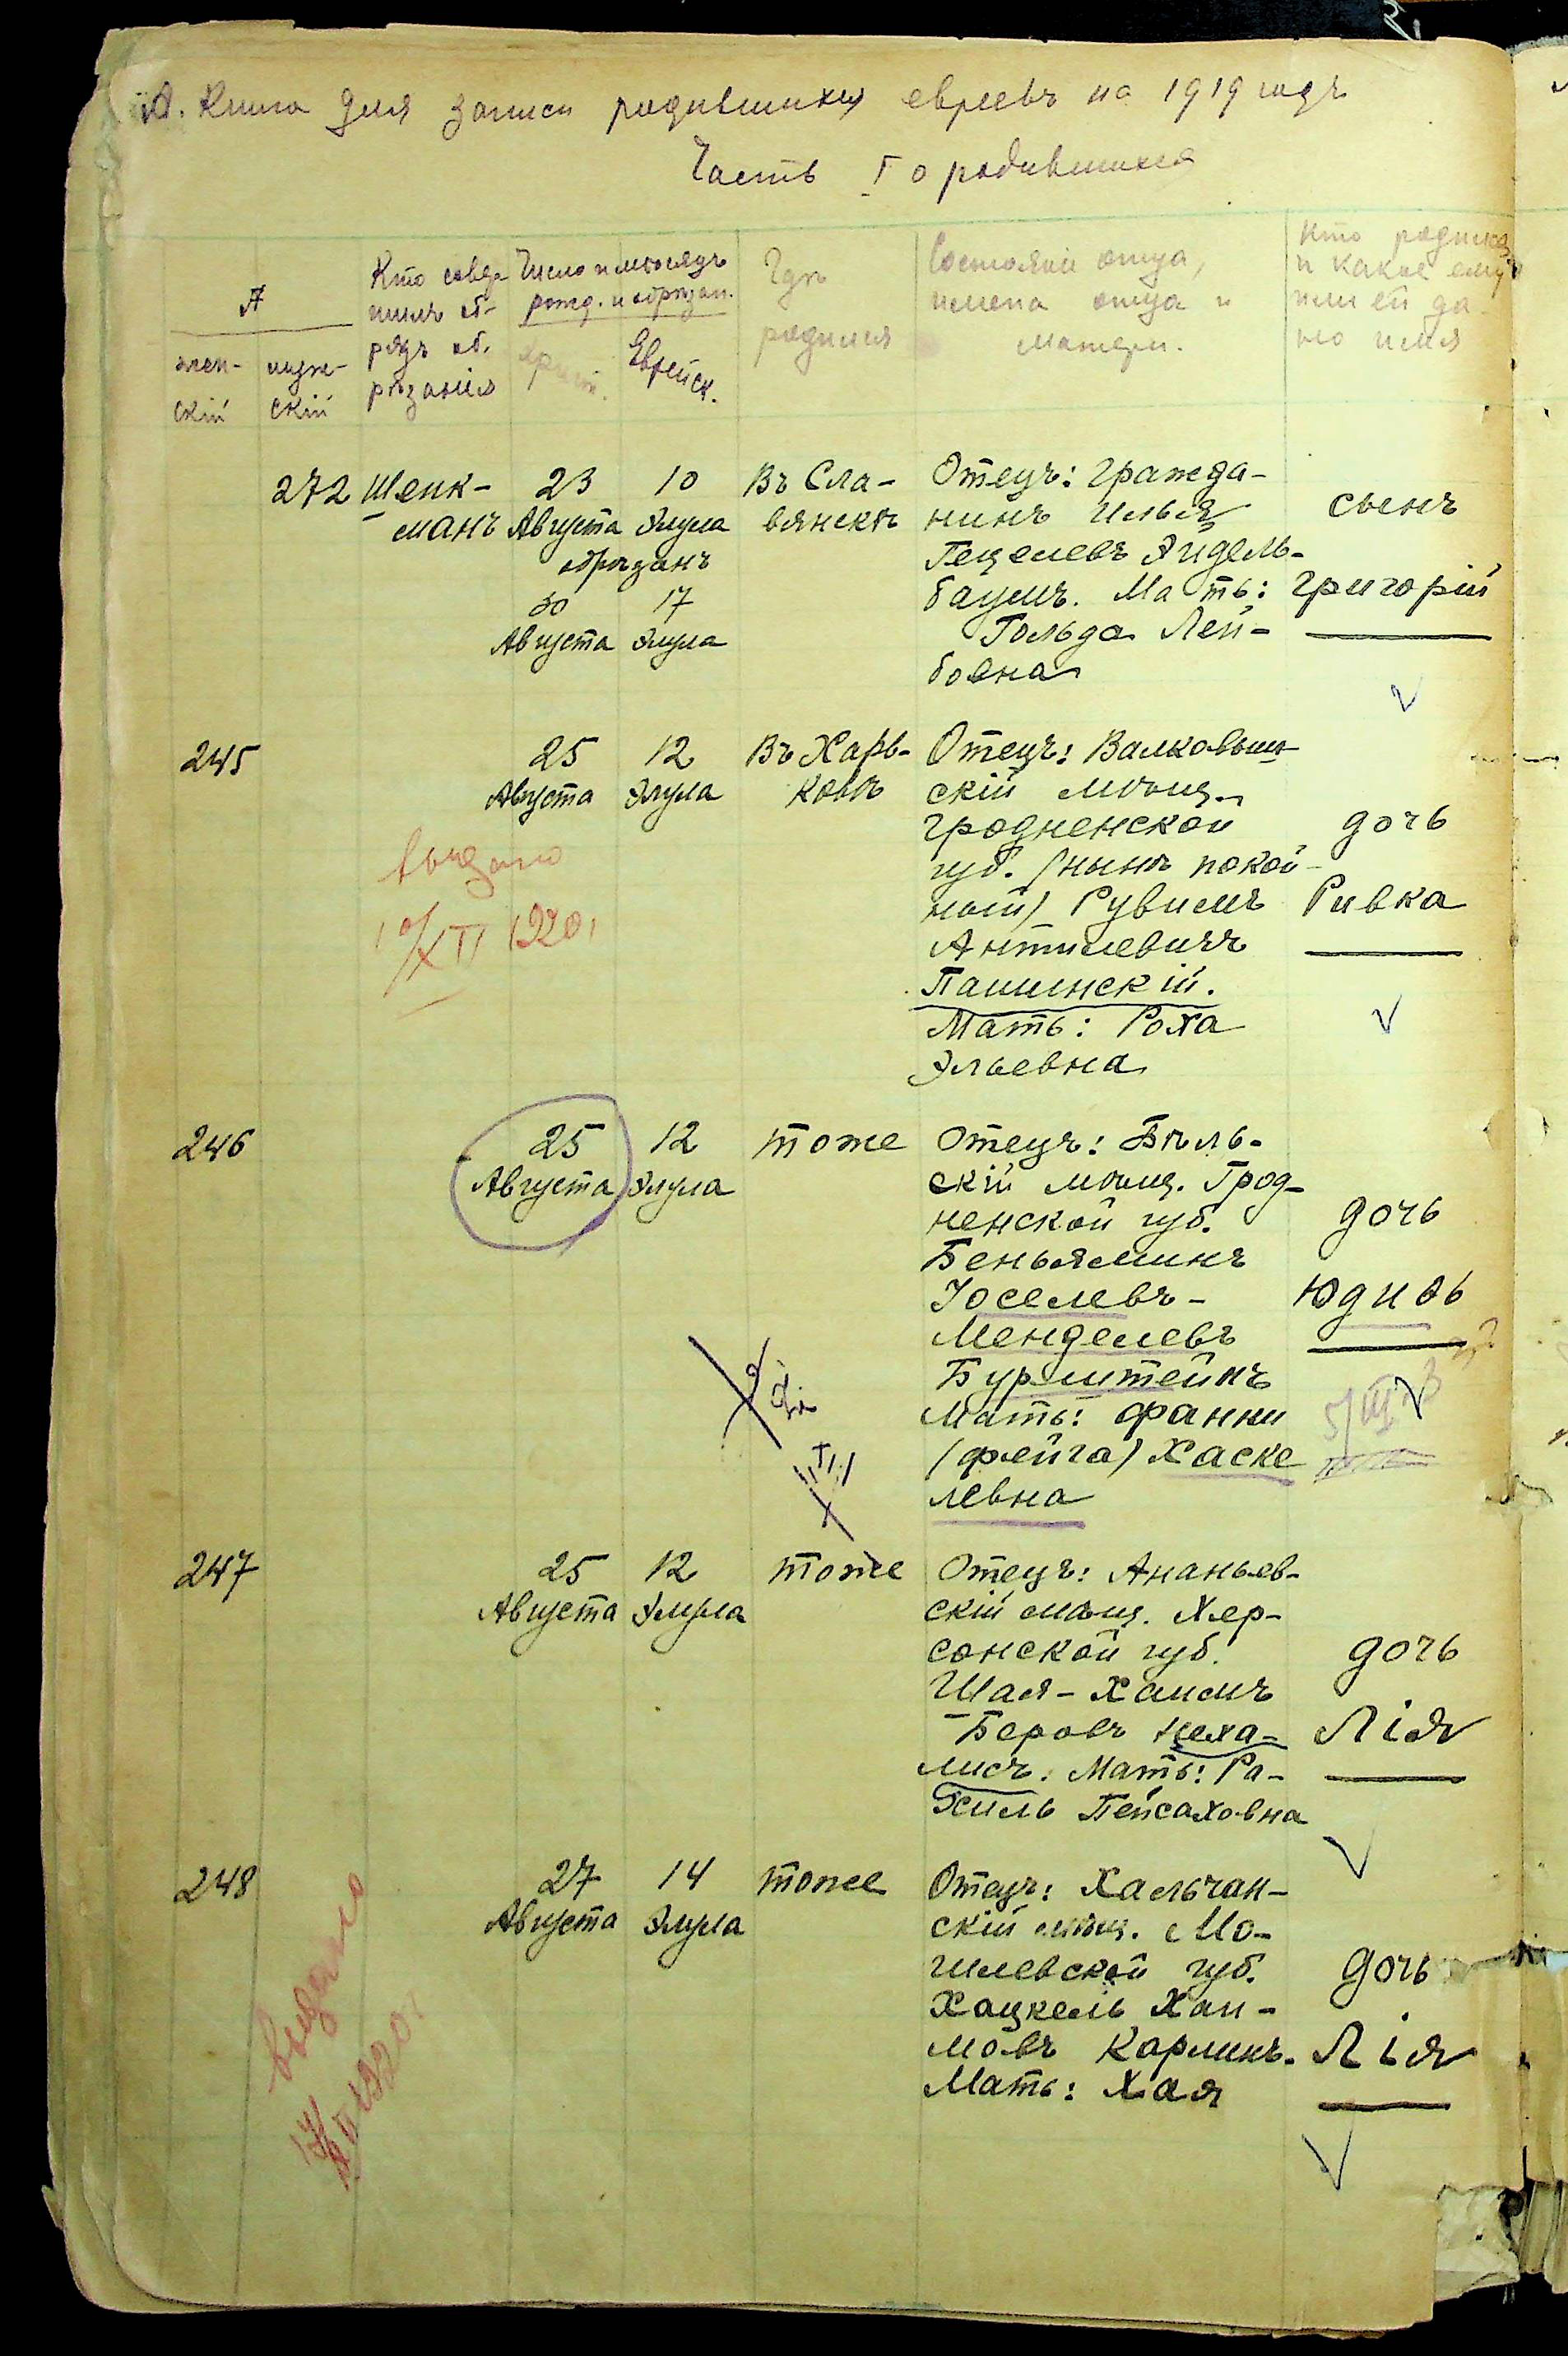 А. Книга для записи родившихся евреевъ на 1919 годъ
Часть I о родившихся
А
жен-
скій
мужe-
скій
Кто совер-
шилъ об-
рядъ об-
рѣзанія
Число и мѣсяцъ
рожд. и обрѣзан.
Еврейск.
Гдѣ
родился
Состояніе отца,
имена отца и
матери.
Кто родился
и какое ему
или ей да-
но имя
272
Шенк-
манъ
23
Августа
10
Элула
обрѣзанъ
30
Августа
17
Элула
Въ Сла-
вянскѣ
Отецъ: гражда-
нинъ Илья
Гецелевъ Эйдель-
баумъ. Мать:
Гольда Лей-
бовна
сынъ
Григорій
245
25
Августа
12
Элула
Въ Харь-
ковѣ
Отецъ: Валковыш-
скій мѣщ.
Гродненской
губ. (нынѣ покой-
ный) Рувимъ
Антилевичъ
Пашинскій.
Мать: Роха
Эльевна
дочь
Ривка
выдано
XII 1920
246
25
Августа
12
Элула
тоже
Отецъ: Бѣль-
скій мѣщ. Грод-
ненской губ.
Беньяминъ
Іоселевъ-
Менделевъ
Бурштейнъ
Мать: Фанни
(Фейга) Хаске
левна
дочь
Юдиѳь
247
25
Августа
12
Элула
тоже
Отецъ: Ананьев-
скій мѣщ. Хер-
сонской губ.
Шая-Хаимъ
Беровъ Неха-
мисъ. Мать: Ра-
хиль Пейсаховна
дочь
Лія
248
27
Августа
14
Элула
тоже
Отецъ: Хальчан-
скій мѣщ. Мо-
гилевской губ.
Хацкель Хаи-
мовъ Карлинъ.
Мать: Хая
дочь
Лія
выдано
1920